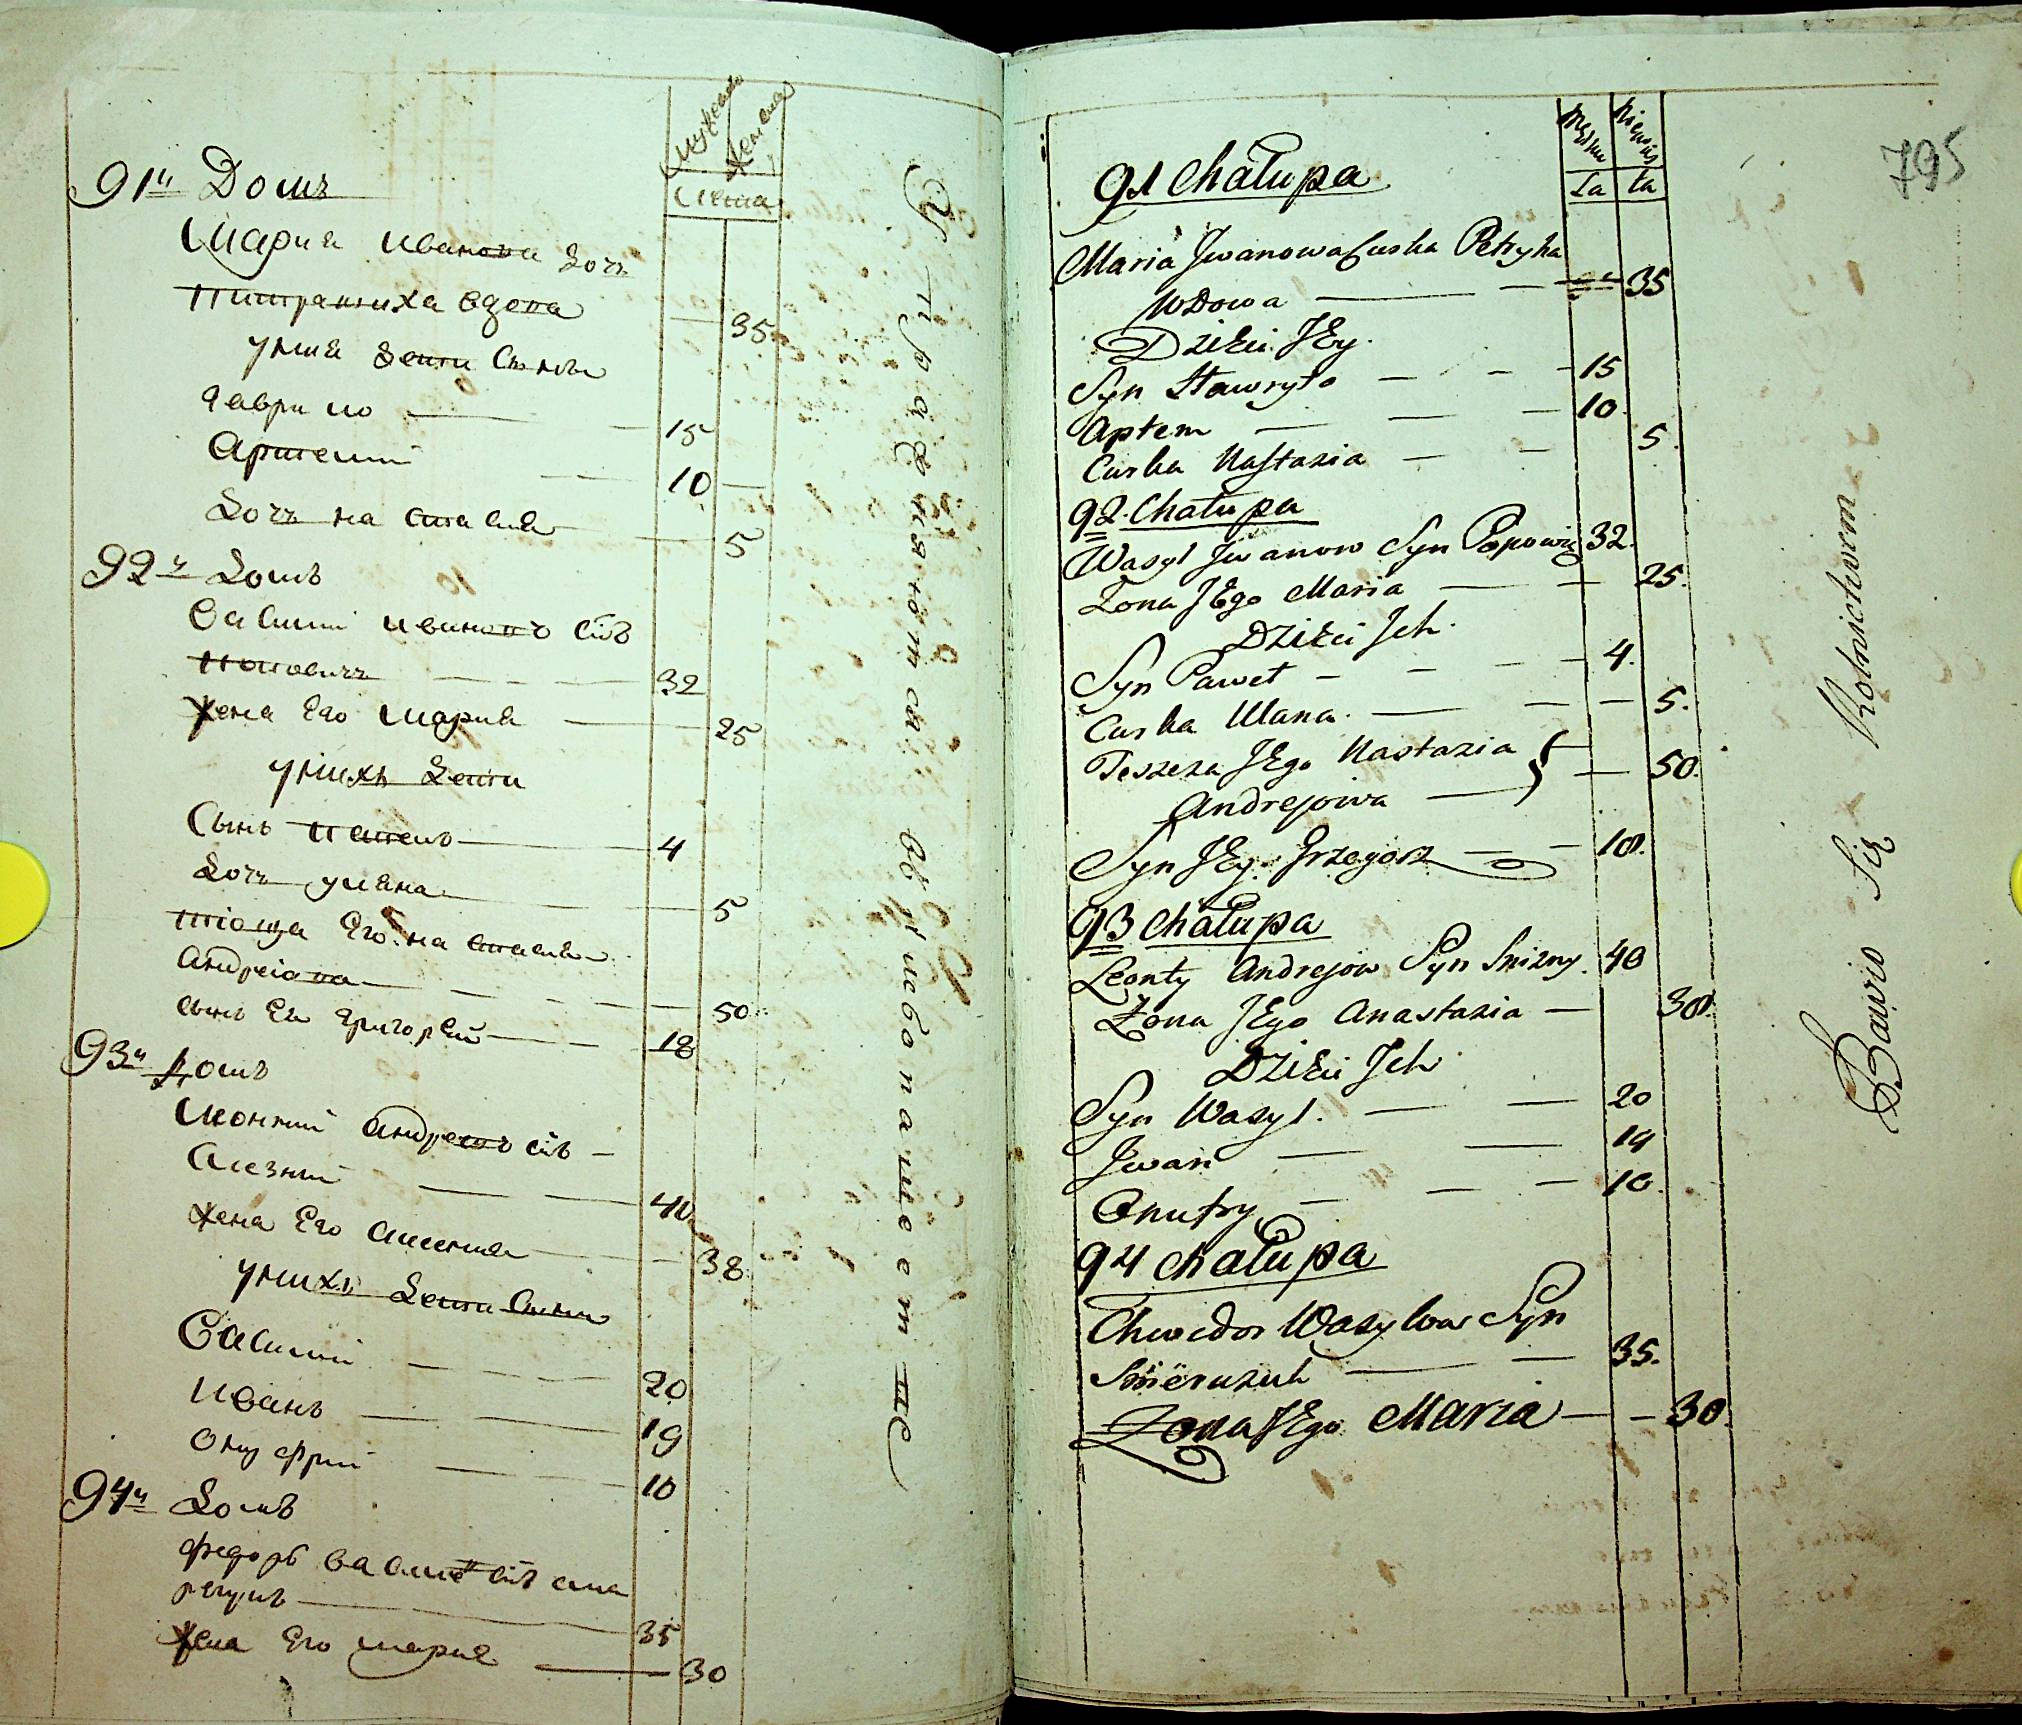 Мужеска Женска
Лета
91й Домъ
Мария иванова дочь
Питраниха вдова 35
умиа дети сыны
гаврило 15
Артемий 10
дочь настасия 5
92й домъ
Василий ивановъ сынъ
Поповичъ 32
жена его мария 25
умихъ дети
Сынъ павелъ 4
дочь улиана 5
тіоща его настасия
Андреіова 50
сынъ ея григорей 18
93й домъ
Леонтий андреевъ сынъ
Снезний 40
жена его анастасия 38
умихъ дети сыны
Василий 20
иванъ 19
онуфрий 10
94й домъ
федоръ василевъ сынъ сма
рещукъ 35
жена его мария 30
Упражняютса вхлебопашестве
795
Męzkie Niewias
La ta
91 Chałupa
Maria Jwanowa Curka Petrycha
Wdowa 35
Dzieci JEy.
Syn Hawryło 15
Artem 10
Curka Nastazia 5
92. Chałupa
Wasyl Jwanow Syn Popowicz 32.
Zona JEgo Maria 25.
Dzieci Jch.
Syn Paweł 4.
Curka Ulana. 5.
Teszcza JEgo Nastazia
Andrejowa 50.
Syn JEy. Grzegorz 18.
93 Chałupa
Leonty Andrejow Syn Snizny. 40
Zona JEgo Anastazia 38.
Dzieci Jch
Syn Wasyl. 20
Jwan 19
Onufry 10
94 Chałupa
Chwedor Wasylow Syn
35.
Zona JEgo Maria 30.
Bawio Się Rolnictwem